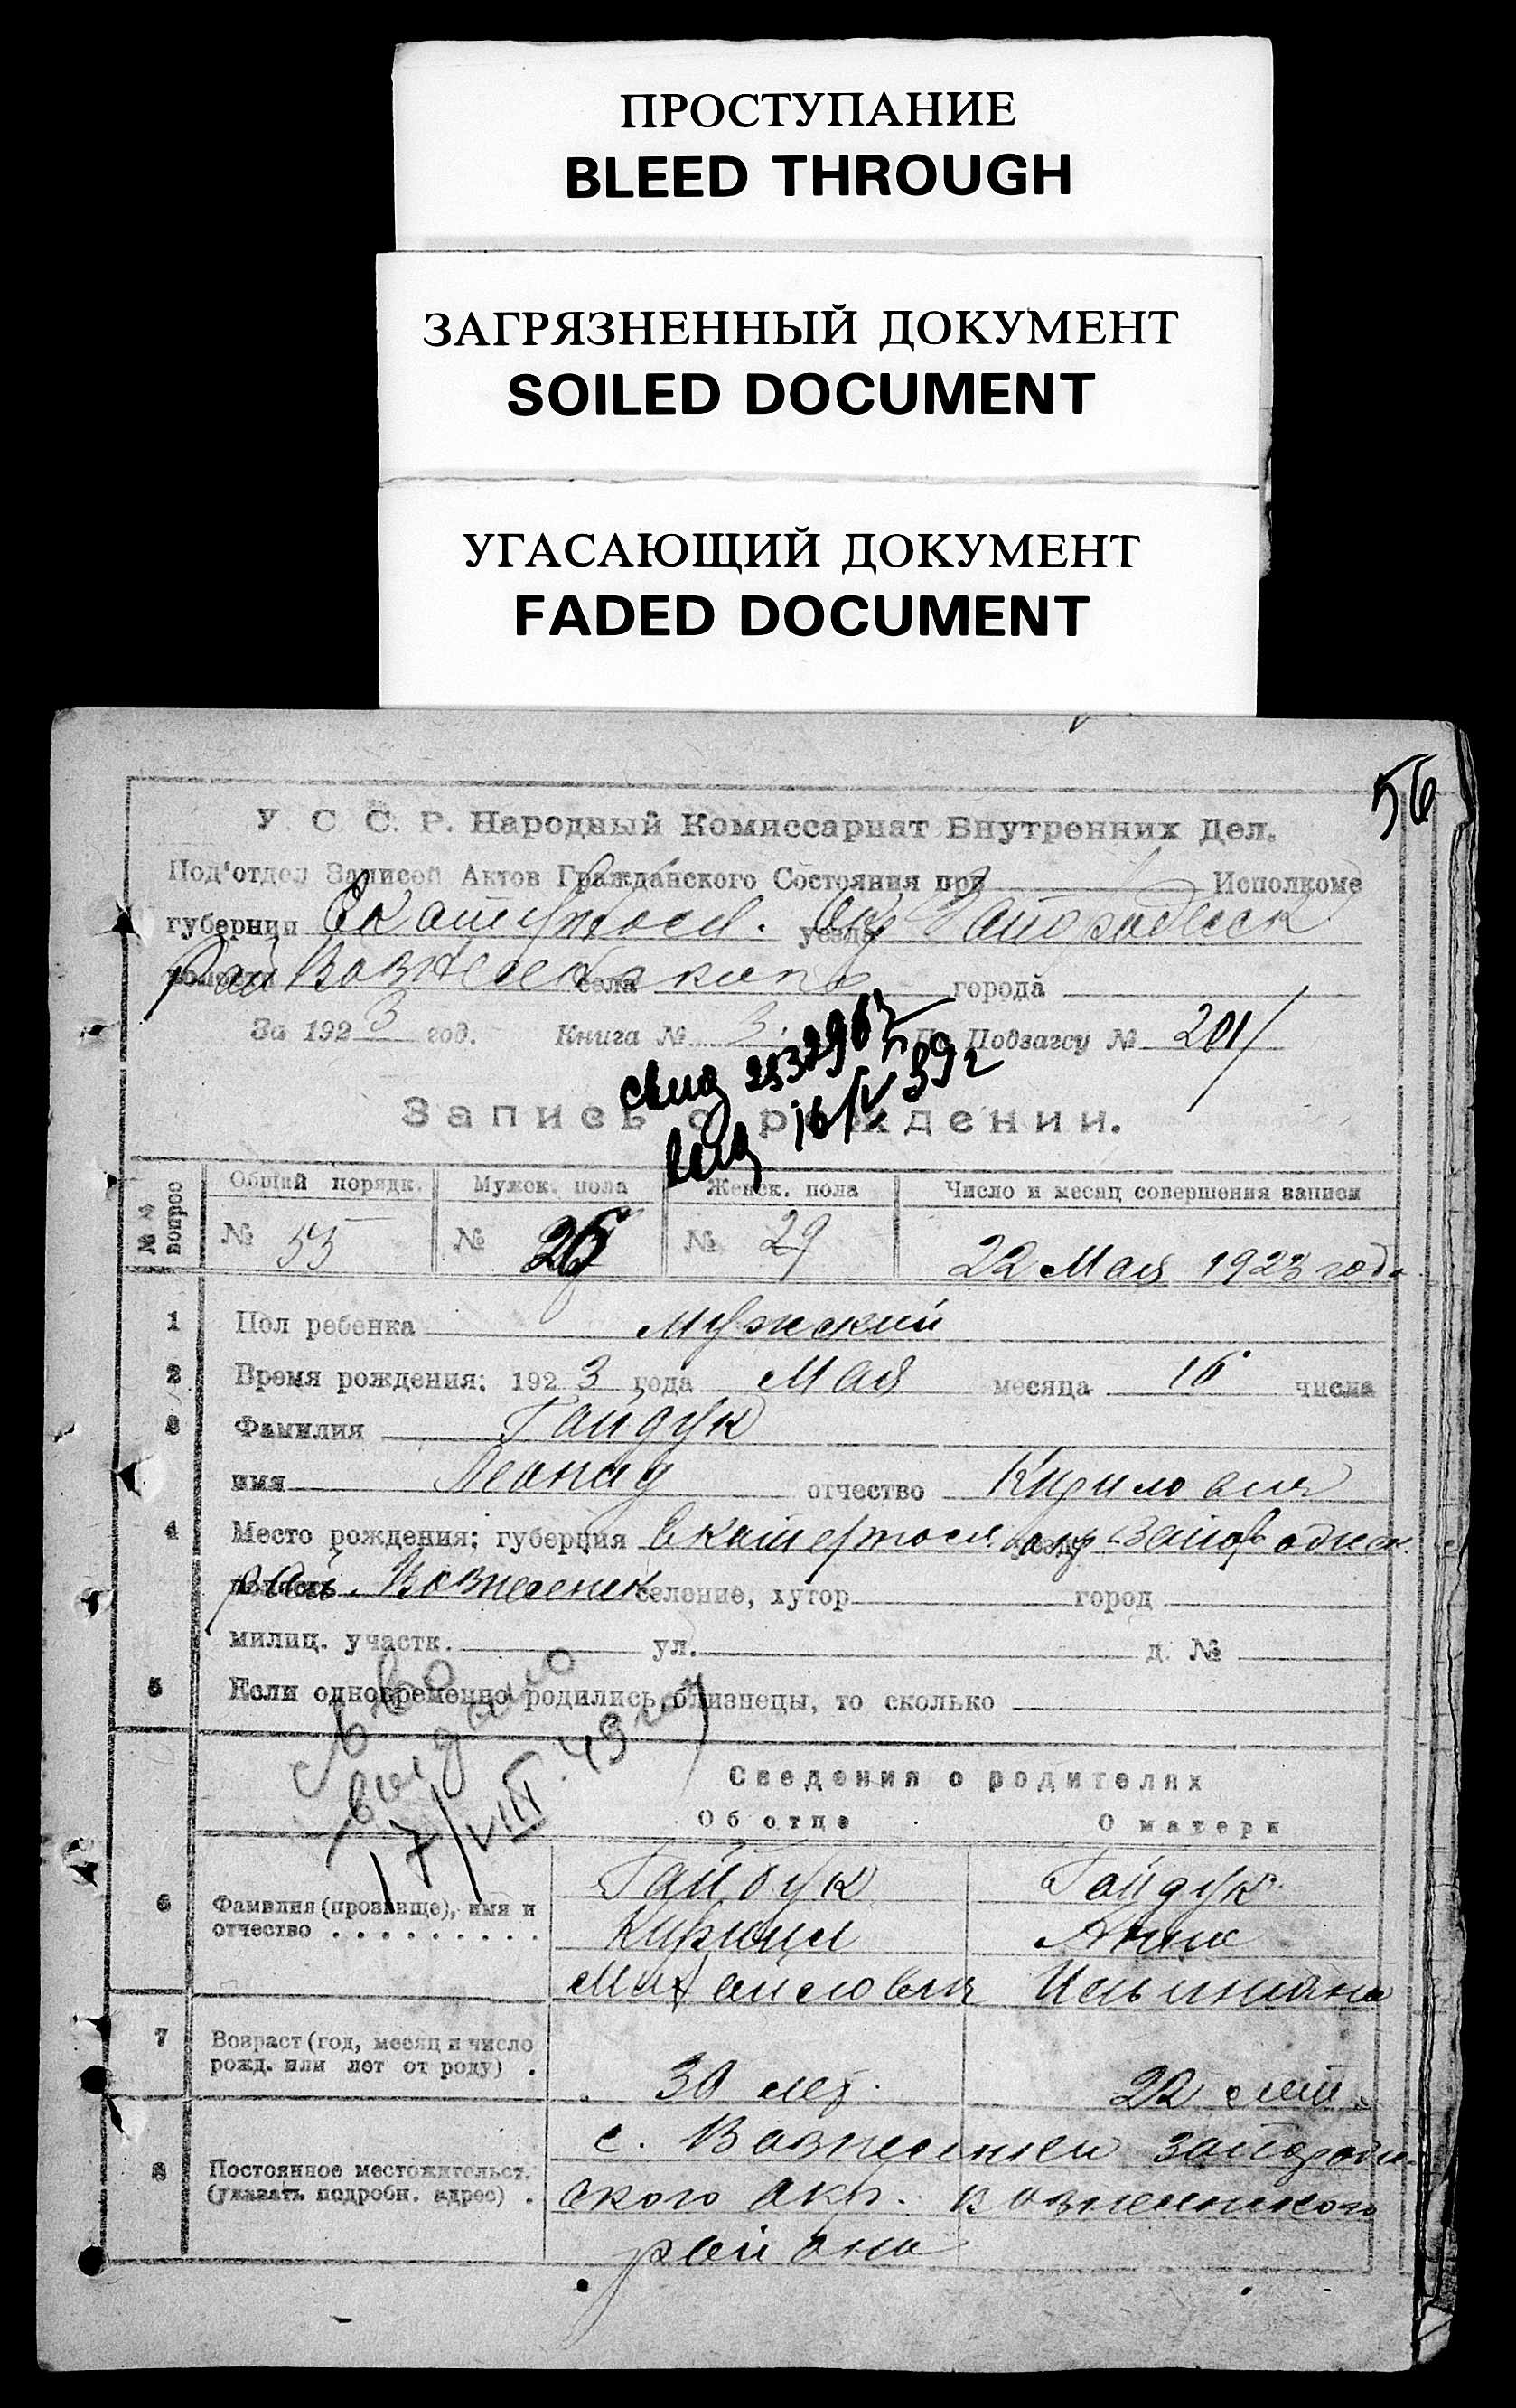 ПРОСТУПАНИЕ
BLEED THROUGH
ЗАГРЯЗНЕННЫЙ ДОКУМЕНТ
SOILED DOCUMENT
УГАСАЮЩИЙ ДОКУМЕНТ
FADED DOCUMENT
56
У. С. С. Р. Народный Комиссариат Внутренних Дел.
Под'отдел Записей Актов Гражданского Состояния при Исполкоме
губернии Екатериносл. уезда Окр Запорожск
Рай Вознесенского села города
За 1923 год. Книга № 3. По Подзагсу № 201
свид 2532967
Запись о рождении.
выд 16/IV 39 г
№№ вопрос Общий порядк. Мужск. пола Женск. пола Число и месяц совершения записи
№ 55 № 26 № 29 22 Мая 1923 года
1 Пол ребенка мужской
2 Время рождения: 1923 года Мая месяца 16 числа
3 Фамилия Гайдук
имя Леонид отчество Кирилович
4 Место рождения: губерния Екатериносл. уезд окр Запорожск.
волость рай. Вознесенск селение, хутор город
милиц. участк. ул. д. №
5 Если одновременно родились близнецы, то сколько
св-во
выдано
17/VIII 49 год
Сведения о родителях
Об отце О матери
6 Фамилия (прозвище), имя и отчество Гайдук Гайдук
Кирилл Анна
Михайлович Ильинична
7 Возраст (год, месяц и число рожд. или лет от роду) 30 лет. 22 лет
8 Постоянное местожительст. (указать подробн. адрес) с. Вознесенки Запорож-
ского окр. Вознесенского
района